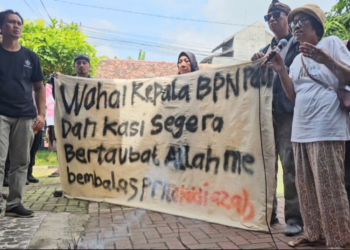 Wahai Kepala BPN
Dan Kasi Segera
Bertaubat Allah me
mbalas